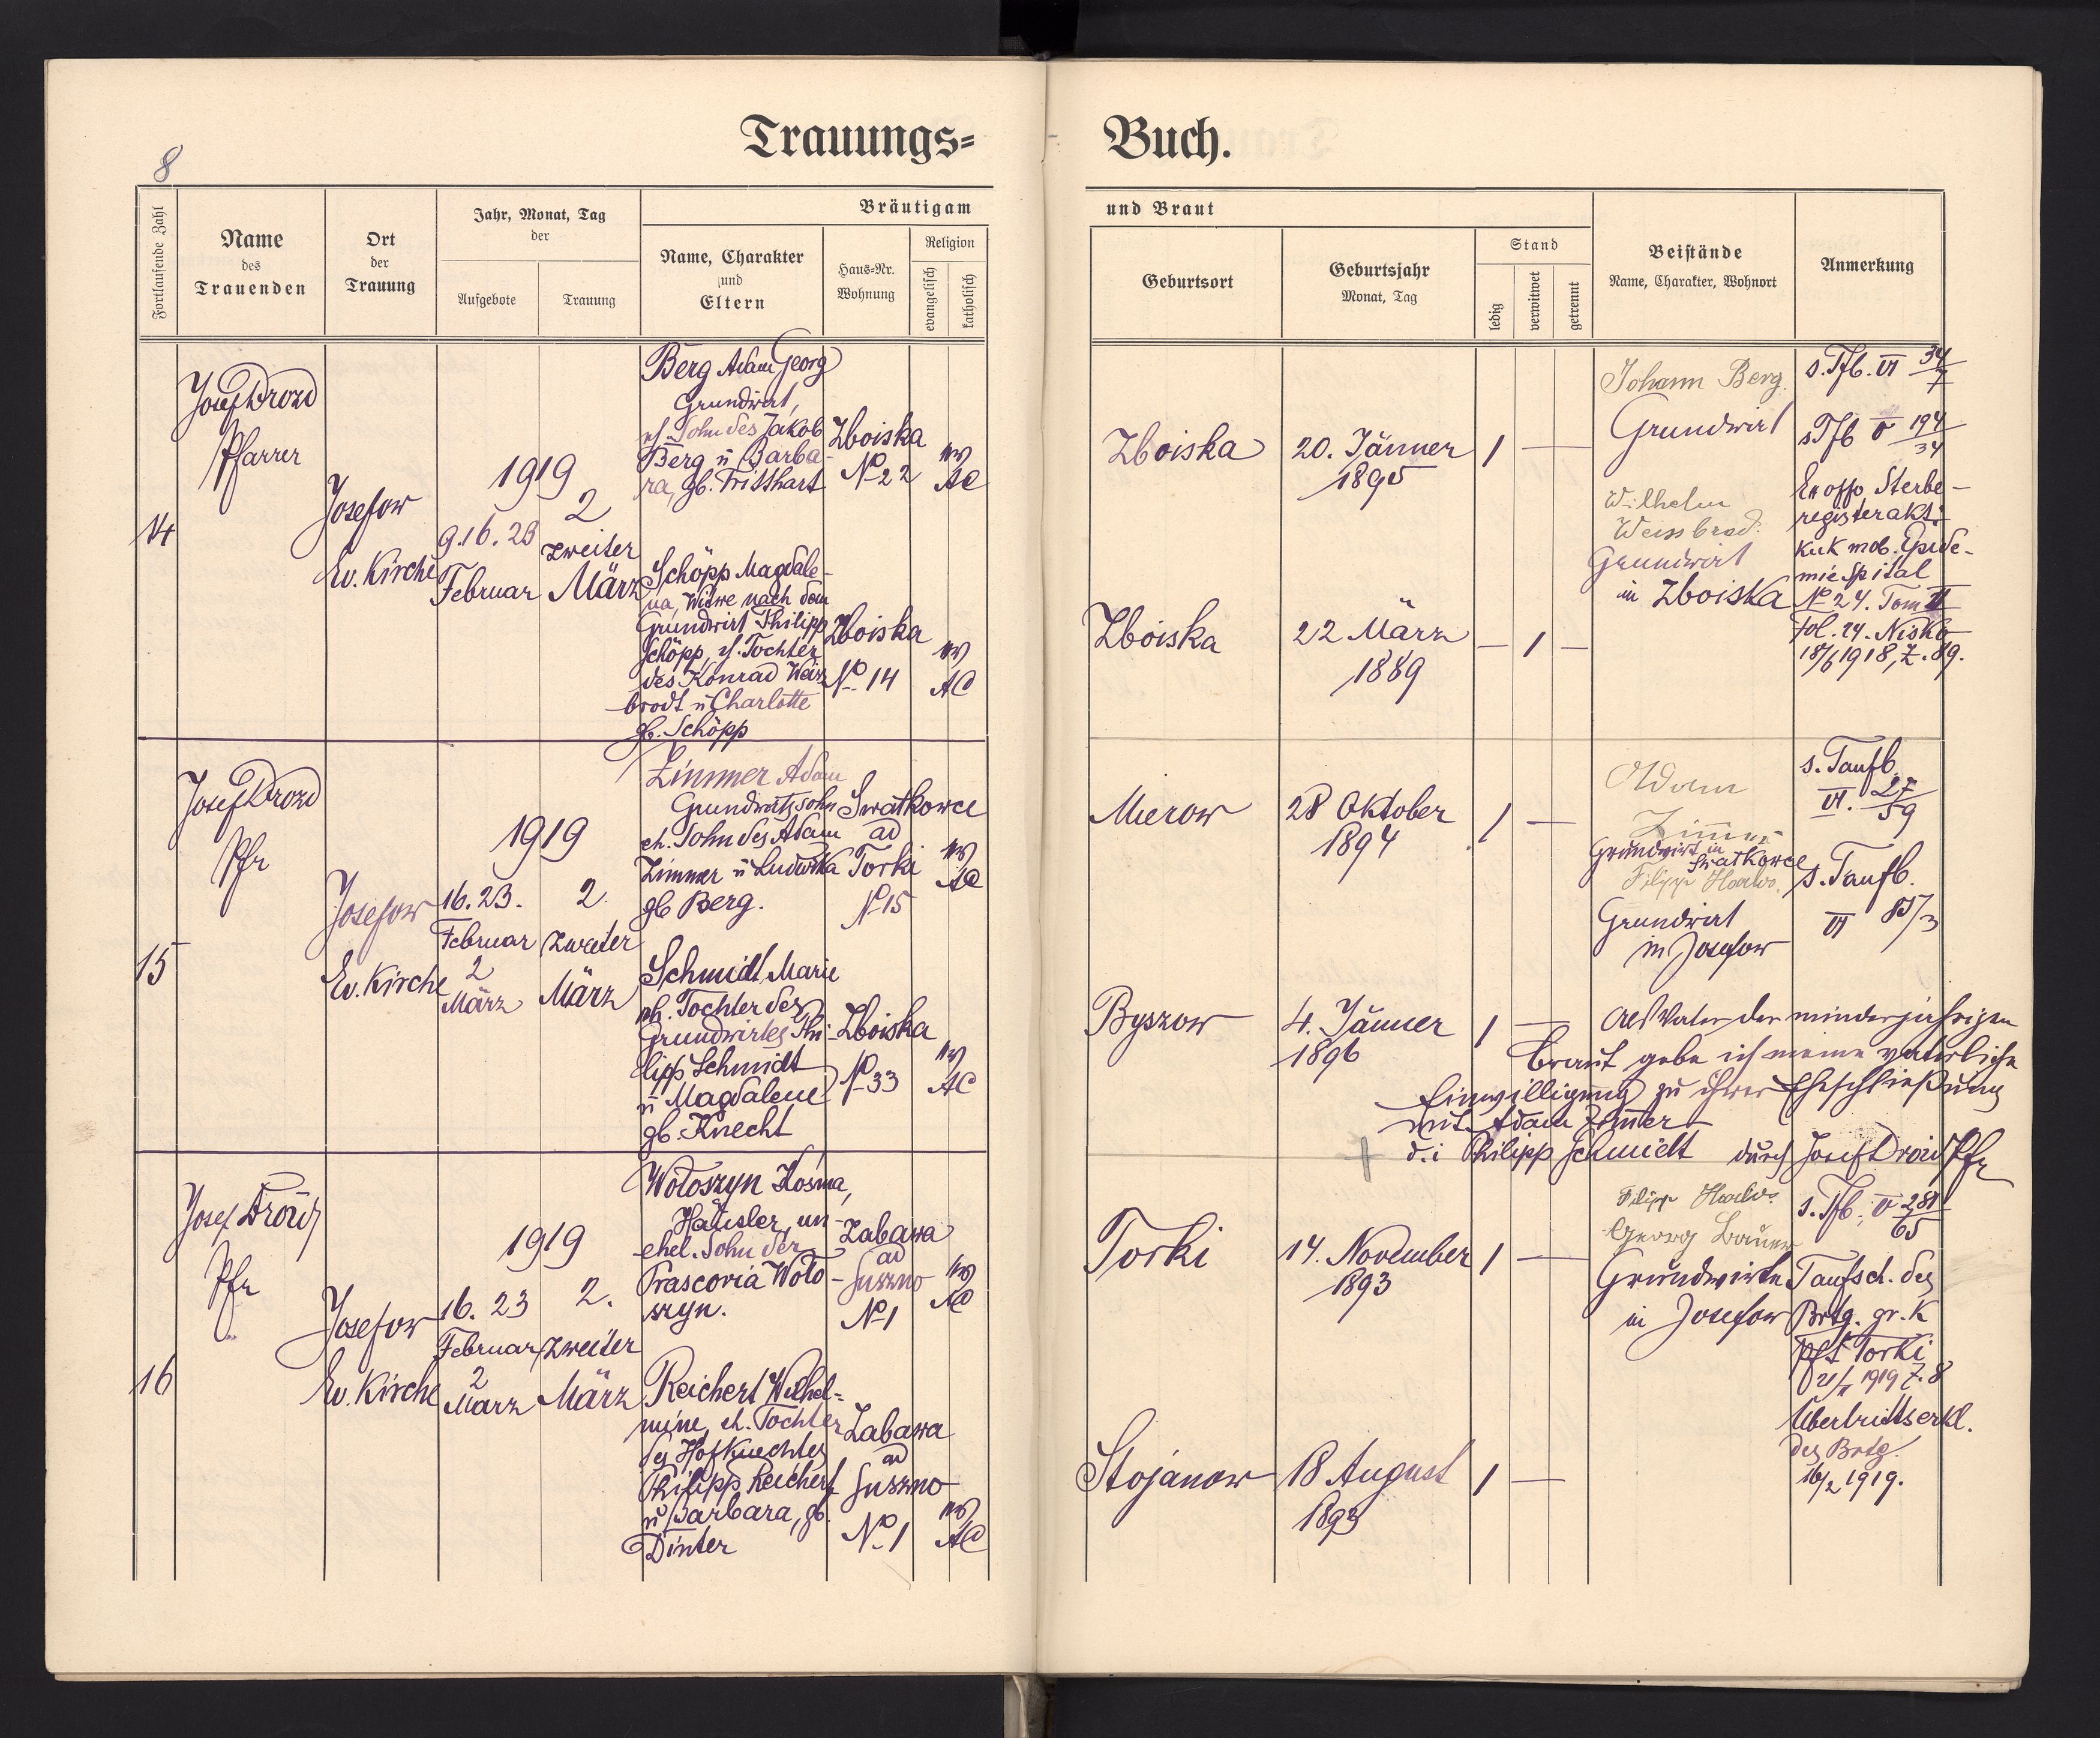 8
Trauungs=
Buch.
Fortlaufende Zahl
Name
des
Trauenden
Ort
der
Trauung
Jahr, Monat, Tag
der
Aufgebote
Trauung
Bräutigam
Name, Charakter
und
Eltern
Haus=Nr.
Wohnung
Religion
evangelisch
katholisch
und Braut
Geburtsort
Geburtsjahr
Monat, Tag
Stand
ledig
verwitwet
getrennt
Beistände
Name, Charakter, Wohnort
Anmerkung
14
Josef Drozd
Pfarrer
Josefow
Ev. Kirche
1919
9.16.23
Februar
2
zweiter
März
Berg Adam Georg
Grundwirt,
Sohn des Jakob
Berg u Barba-
ra, gb.
Zboiska
No 22
ev
AC
Schöpp Magdale-
na, Witwe nach dem
Grundwirt Philipp
Schöpp, Tochter
des Konrad Weiz
brodt u Charlotte
gb. Schöpp
Zboiska
No 14
ev
AC
Zboiska
20. Jänner
1895
1 —
Zboiska
22 März
1889
— 1 —
Johann Berg
Grundwirt
Wilhelm
Weissbrod
Grundwirt
in Zboiska
s. Tfb. VI 34/7
s Tfb V 194/34
Ex offo Sterbe-
registerakt:
KuK mob. Epide-
mie Spital
No 24. Tom II
fol. 24. Nisko
18/6 1918, Z. 89.
15
Josef Drozd
Pfr
Josefow
Ev. Kirche
1919
16. 23.
Februar
2
März
2.
zweiter
März
Zimmer Adam
Grundwirtssohn
eh. Sohn des Adam
Zimmer u Ludwika
gb Berg.
Swatkowce
ad
Torki
No 15
ev
AC
Schmidt Marie
eh. Tochter des
Grundwirtes Phi-
lipp Schmidt
u Magdalene
gb. Knecht
Zboiska
No 33
ev
AC
Mierow
28 Oktober
1894
1 —
Byszow
4. Jänner
1896
1 —
Adam
Zimmer
Grundwirt in
Swatkowce
Filipp
Grundwirt
in Josefow
s. Taufb.
VI. 27/59
s. Taufb.
VI
Als Vater der minderjährigen
Braut gebe ich meine väterliche
Einwilligung zu ihrer Eheschließung
mit Adam Zimmer
d.i Philipp Schmidt durch Josef Drozd Pfr
16
Josef Drozd
Pfr
Josefow
Ev. Kirche
1919
16. 23
Februar
2
März
2.
zweiter
März
Wołoszyn Kosma,
Häusler, un-
ehel. Sohn der
Prascovia Woło-
szyn.
Zabawa
ad
Suszno
No 1
ev
AC
Reichert Wilhel=
mine, eh. Tochter
des Hofknechtes
Philipp Reichert
u Barbara, gb.
Dinter
Zabawa
ad
Suszno
No 1
ev
AC
Torki
14. November
1893
1 —
Stojanow
18 August
1893
1 —
Filipp
Georg Bauer
Grundwirte
in Josefow
s. Tfb. V 281/65
Taufsch. des
Brtg. gr. K
Pft Torki
1919 Z. 8
Übertrittserkl.
des Brtg.
16/2 1919.